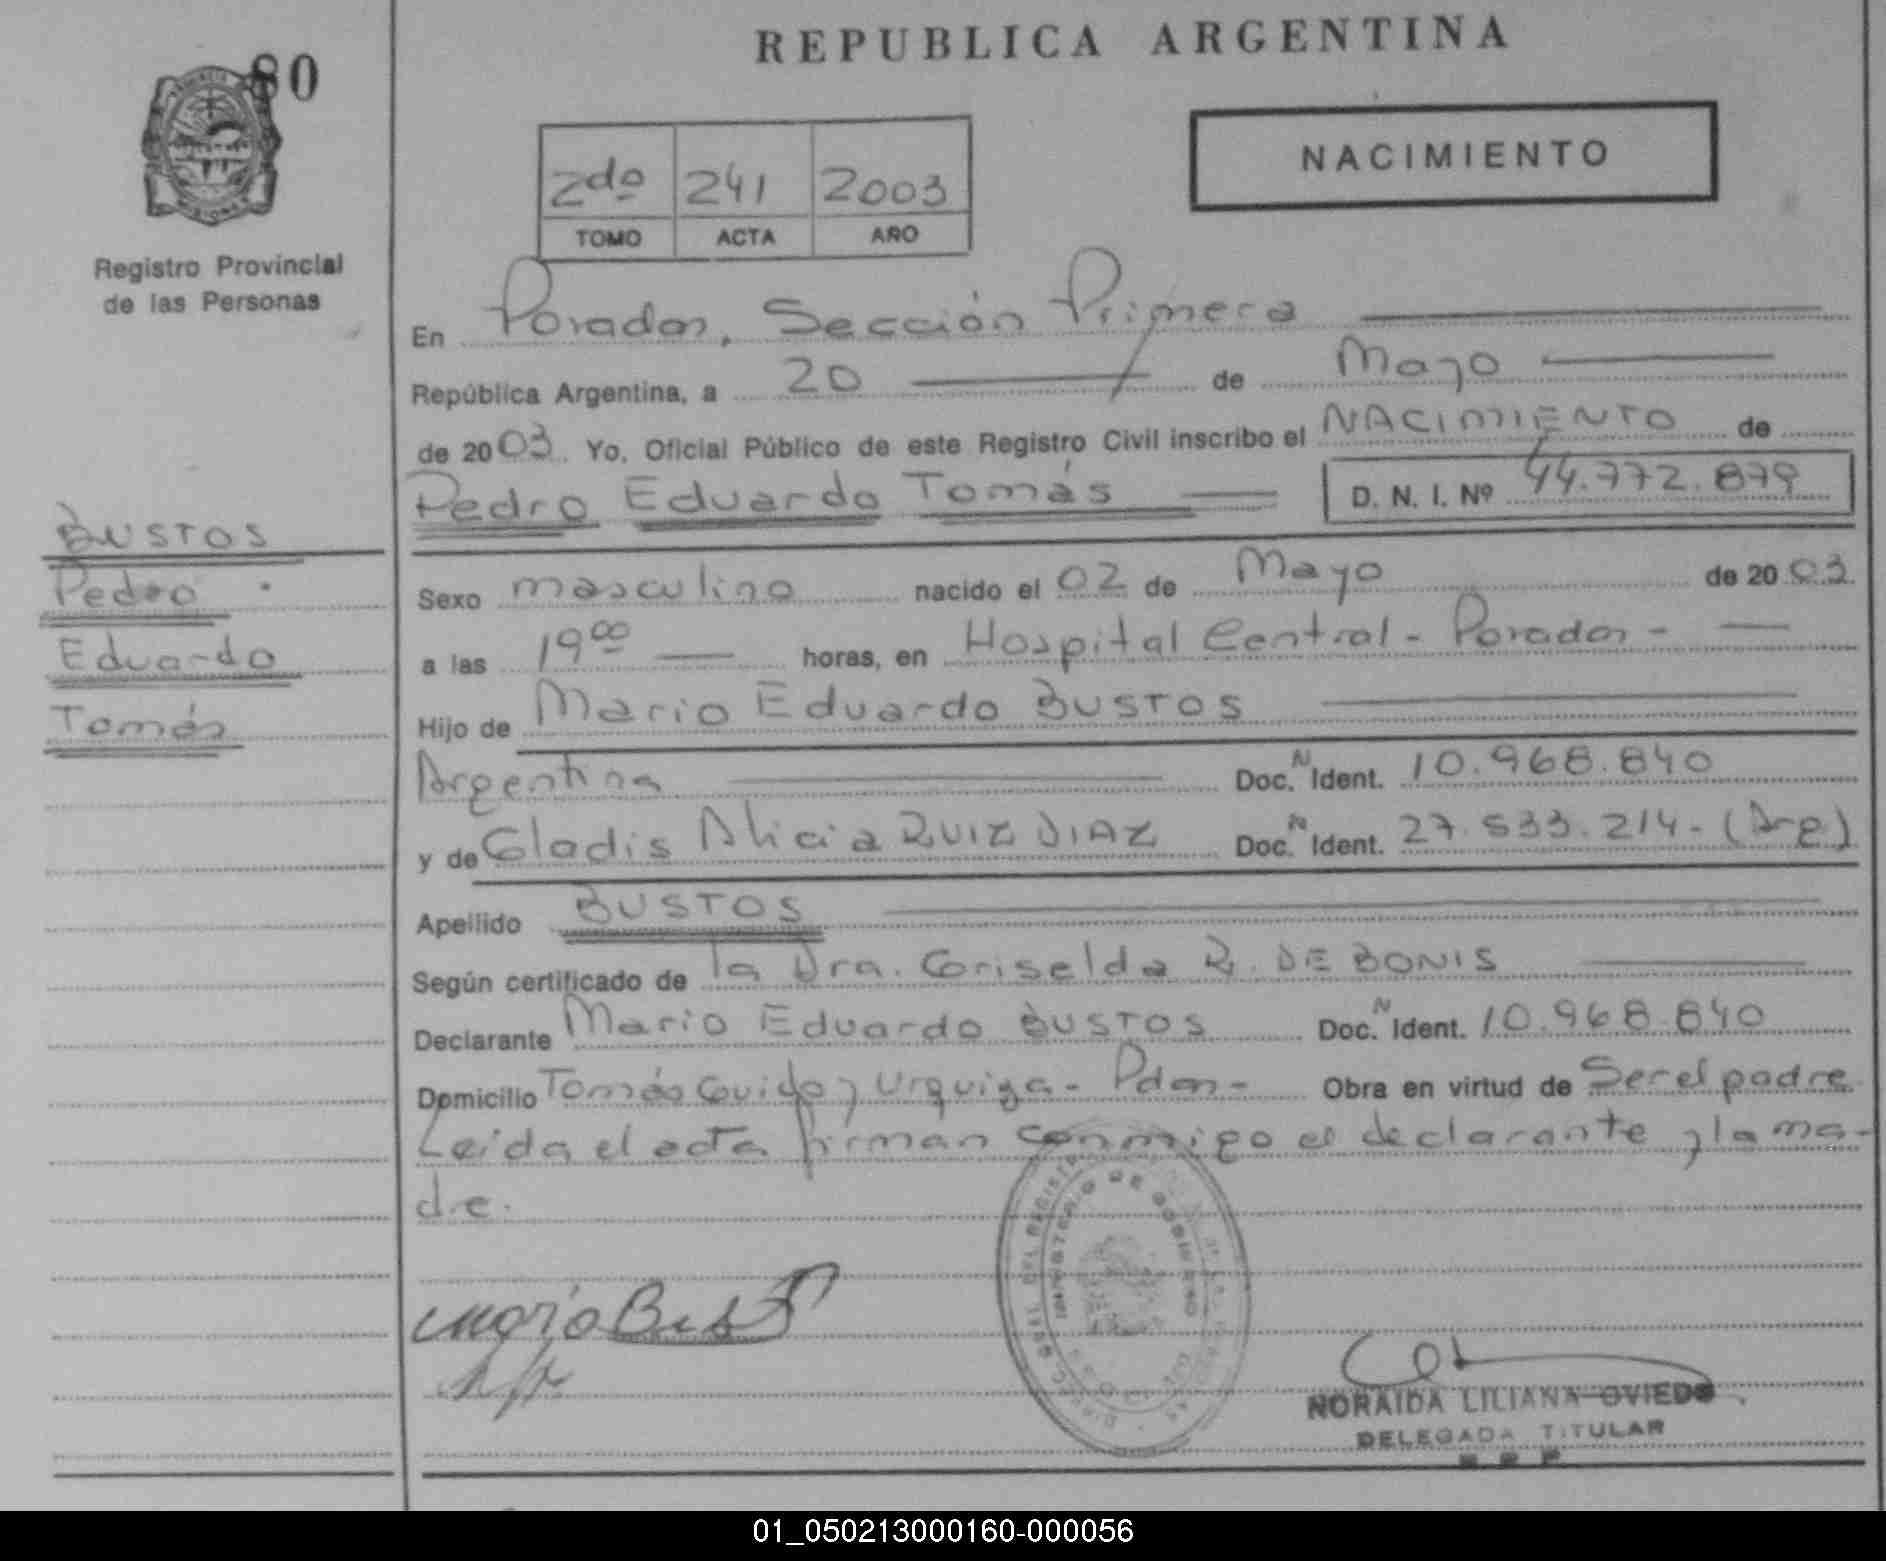 REPUBLICA ARGENTINA
80
NACIMIENTO
2do 241 2003
TOMO ACTA AÑO
Registro Provincial
de las Personas
En Posadas, Sección Primera
República Argentina, a 20 de Mayo
de 2003. Yo, Oficial Público de este Registro Civil inscribo el NACIMIENTO de
Pedro Eduardo Tomás D. N. I. Nº 44.772.879
BUSTOS
Pedro
Eduardo
Tomás
Sexo masculino nacido el 02 de Mayo de 2003.
a las 19 00 horas, en Hospital Central - Posadas -
Hijo de Mario Eduardo BUSTOS
Argentina Doc. N Ident. 10.968.840
y de Gladis Alicia RUIZ DIAZ Doc. N Ident. 27.533.214 - (Arg)
Apellido BUSTOS
Según certificado de la Dra. Griselda R. DE BONIS
Declarante Mario Eduardo BUSTOS Doc. N Ident. 10.968.840
Domicilio Tomás Guido y Urquiza - Pdas - Obra en virtud de Ser el padre
Leida el acta firman conmigo el declarante y la ma-
dre.
MINISTERIO DE GOBIERNO
Mario Bustos
NORAIDA LILIANA OVIEDO
DELEGADA TITULAR
01_050213000160-000056